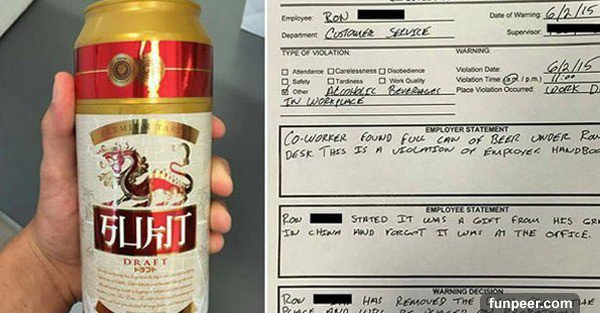 PREMIUM TASTE
SUKIT
DRAFT
ドラフト
Employee: RON
Date of Warning: 6/2/15
Department: CUSTOMER SERVICE
Supervisor:
TYPE OF VIOLATION:
WARNING:
☐ Attendance ☐ Carelessness ☐ Disobedience
☐ Safety ☐ Tardiness ☐ Work Quality
☒ Other ALCOHOLIC BEVERAGES
IN WORKPLACE
Violation Date: 6/2/15
Violation Time: (a.m. / p.m.) 11:00
Place Violation Occurred: WORK D
EMPLOYER STATEMENT
CO-WORKER FOUND FULL CAN OF BEER UNDER RON
DESK. THIS IS A VIOLATION OF EMPLOYEE HANDBOO
EMPLOYEE STATEMENT
RON STATED IT WAS A GIFT FROM HIS
IN CHINA AND FORGOT IT WAS AT THE OFFICE.
WARNING DECISION
RON HAS REMOVED THE
funpeer.com